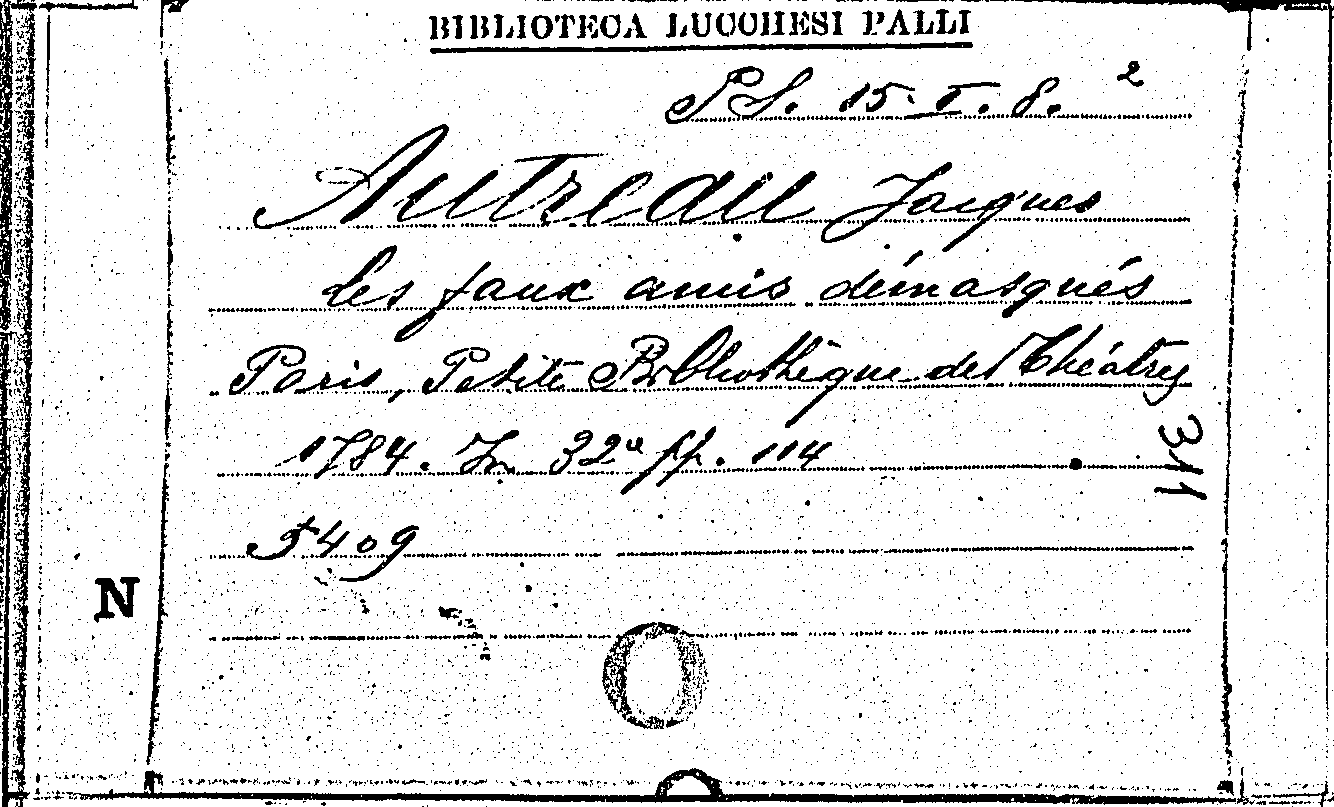 BIBLIOTECA LUCCHESI PALLI
PS. 15. I. 8. 2
Autreau Jacques
Les faux amis démasqués
Paris, Petite Bibliothèque des Théatres
1784. In 32º pp. 114
311
5409
N